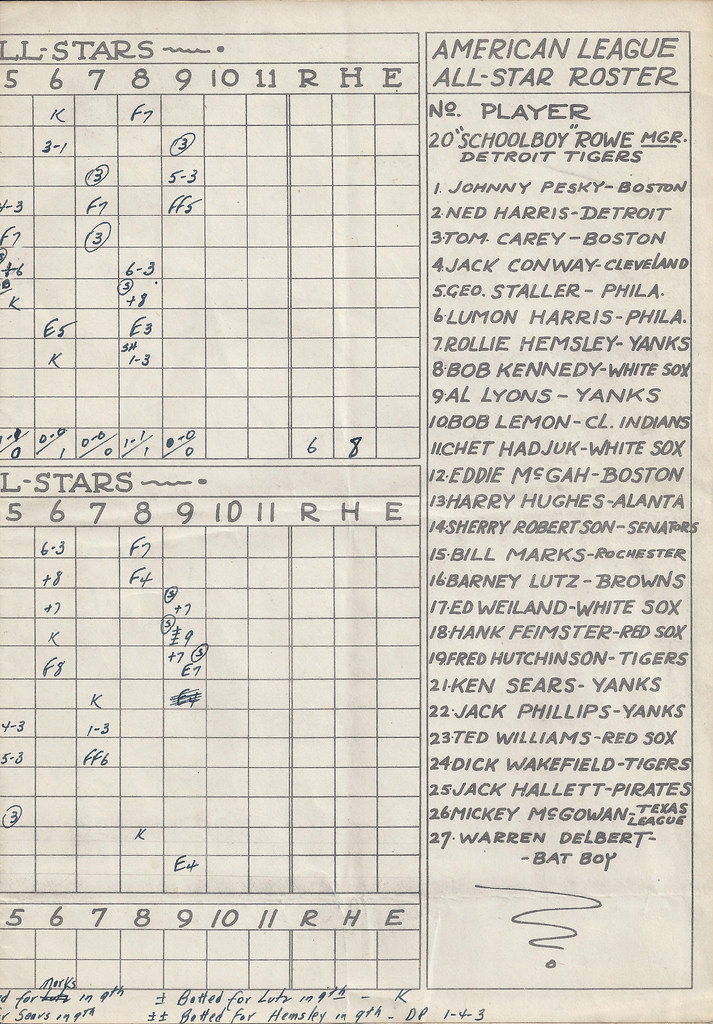 LL-STARS
5 6 7 8 9 10 11 R H E
K F7
3-1 3
3 5-3
4-3 F7 FF5
F7 3
+6 6-3
K 3 +8
E5 E3
K SH 1-3
0-0/1 0-0/0 1-1/1 0-0/0 6 8
L-STARS
5 6 7 8 9 10 11 R H E
6-3 F7
+8 F4 3
+7 +7
K 3 ‡9
F8 +7 3 E7
K E4
4-3 1-3
5-3 FF6
3
K
E4
5 6 7 8 9 10 11 R H E
Marks
d for Lutz in 9th ± Batted for Lutz in 9th - K
r Sears in 9th ±± Batted for Hemsley in 9th - DP 1-4-3
AMERICAN LEAGUE
ALL-STAR ROSTER
No. PLAYER
20 "SCHOOLBOY" ROWE MGR.
DETROIT TIGERS
1. JOHNNY PESKY-BOSTON
2. NED HARRIS-DETROIT
3. TOM. CAREY-BOSTON
4. JACK CONWAY-CLEVELAND
5. GEO. STALLER-PHILA.
6. LUMON HARRIS-PHILA.
7. ROLLIE HEMSLEY-YANKS
8. BOB KENNEDY-WHITE SOX
9. AL LYONS-YANKS
10. BOB LEMON-CL. INDIANS
11. CHET HADJUK-WHITE SOX
12. EDDIE McGAH-BOSTON
13. HARRY HUGHES-ALANTA
14. SHERRY ROBERTSON-SENATORS
15. BILL MARKS-ROCHESTER
16. BARNEY LUTZ-BROWNS
17. ED WEILAND-WHITE SOX
18. HANK FEIMSTER-RED SOX
19. FRED HUTCHINSON-TIGERS
21. KEN SEARS-YANKS
22. JACK PHILLIPS-YANKS
23. TED WILLIAMS-RED SOX
24. DICK WAKEFIELD-TIGERS
25. JACK HALLETT-PIRATES
26. MICKEY McGOWAN-TEXAS LEAGUE
27. WARREN DELBERT-
-BAT BOY